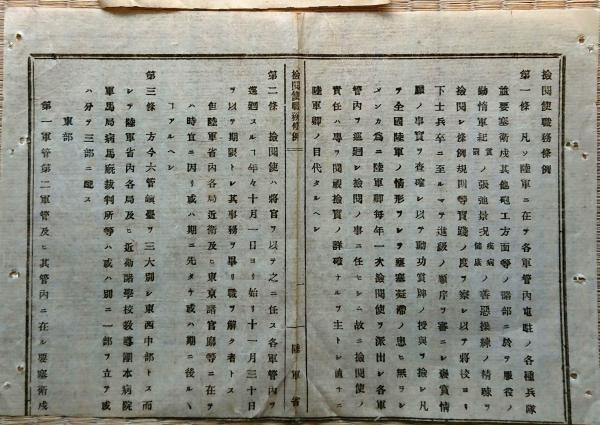 撿閲使職務條例
第一條 凡ソ陸軍ニ在ヲ各軍管内屯駐ノ各種兵隊
並要塞衛戍其他砲工方面等ノ諸部ニ於ヲ服役ノ
勤惰軍紀賞罰ノ張弛景況疾病健康ノ善惡操練ノ精疎ヲ
撿閲シ條例規則等實踐ノ度ヲ察シ以テ將校ヨリ
下士兵卒ニ至ルマテ進級ノ順序ヲ審ニシ褒貶情
願ノ事實ヲ査確シ以テ勳功賞牌ノ授與ヲ撿シ凡
ヲ全國陸軍ノ情形ヲシテ壅塞凝滯ノ患ヒ無ヲシ
メンカ爲ニ陸軍卿毎年一次撿閲使ヲ派出シ各軍
管内ヲ巡廻シ撿閲ノ事ニ任セシム故ニ撿閲使ノ
責任ハ專ヲ閲視撿實ノ詳確ナルヲ主トシ直ナニ
陸軍卿ノ目代タルヘシ
撿閲使職務條例
一
陸軍省
第二條 撿閲使ハ將官ヲ以テ之ニ任ス各軍管内ヲ
巡廻スルコ年々十月一日ヨリ始リ十一月三十日
ヲ以テ期限トシ其事務ヲ畢リ職ヲ解ク者トス
但陸軍省内各局近衛及ヒ東京諸官廨等ニ在ヲ
ハ時宜ニ因リ或ハ期ニ先タチ或ハ期ニ後ルヽ
コアルヘシ
第三條 方今六管鎭臺ヲ三大別シ東西中部トス而
シテ陸軍省内各局及ヒ近衛諸學校敎導團本病院
軍馬局病馬廐裁判所等ハ或ハ別ニ一部ヲ立テ或
ハ分ヲ三部ニ配ス
東部
第一軍管第二軍管及ヒ其管内ニ在ル要塞衛戍